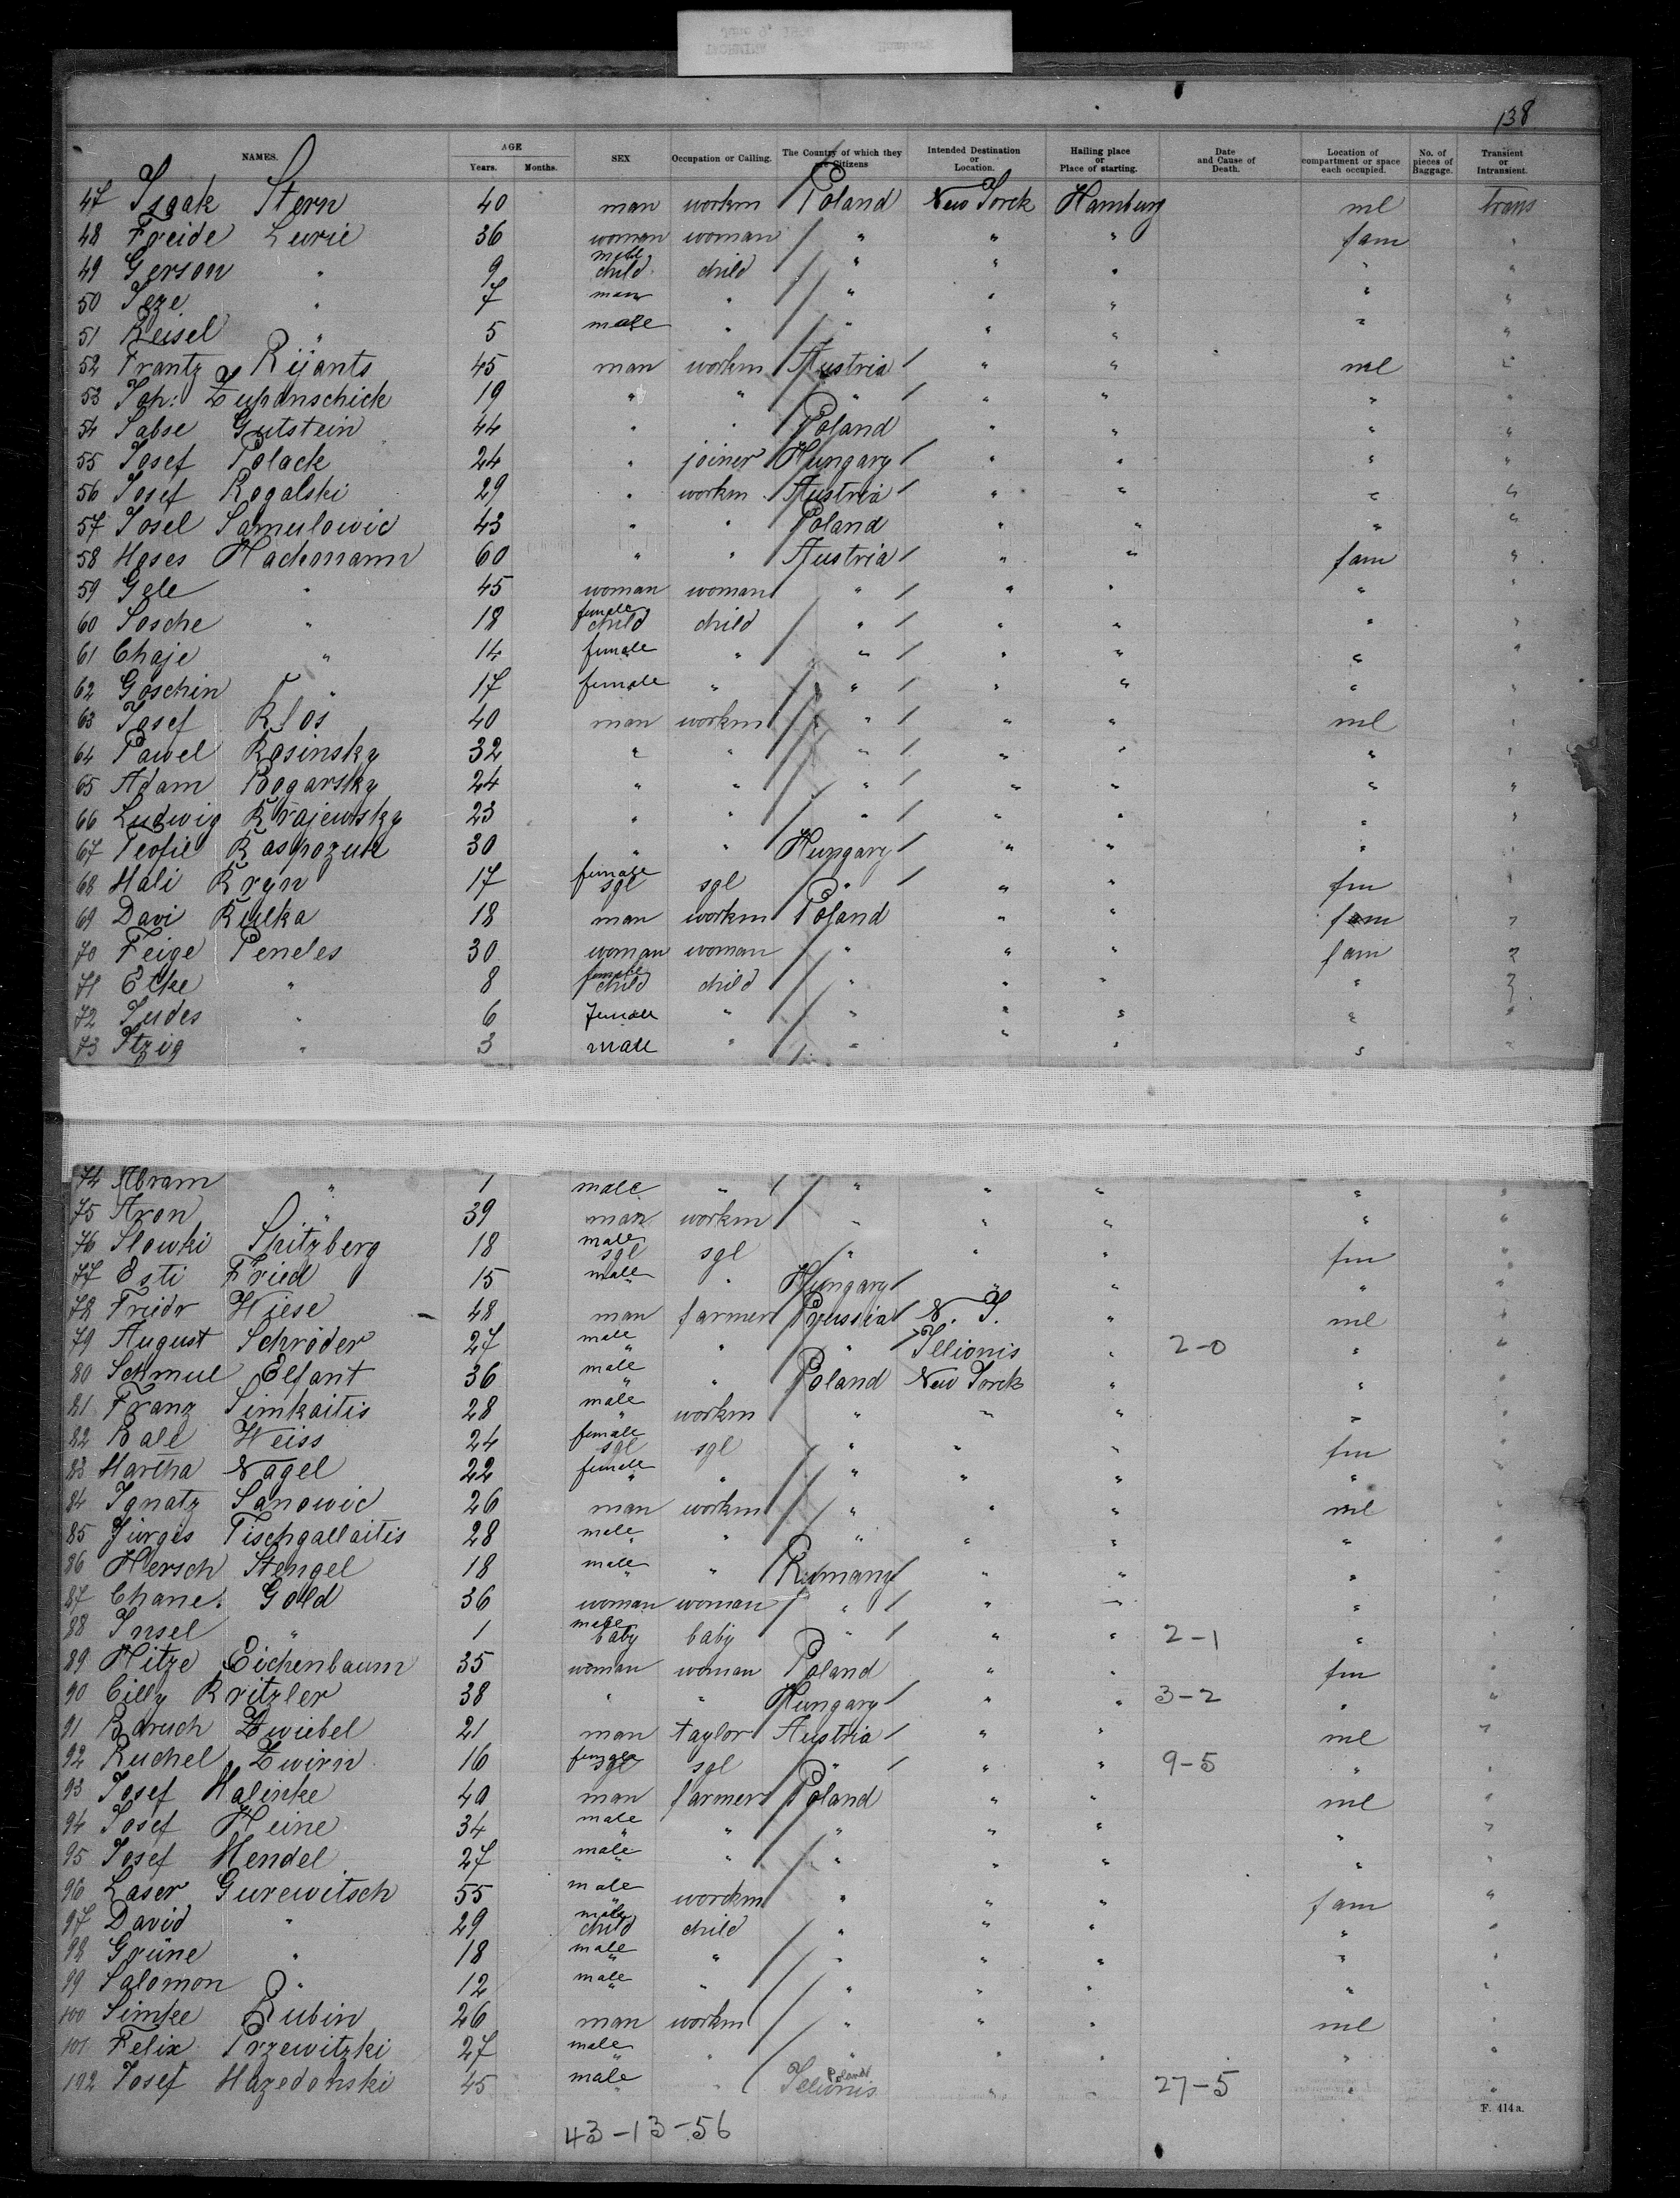 138
NAMES. AGE Years. Months. SEX Occupation or Calling. The Country of which they are Citizens Intended Destination or Location. Hailing place or Place of starting. Date and Cause of Death. Location of compartment or space each occupied. No. of pieces of Baggage. Transient or Intransient.
47 Isaak Stern 40 man workm Poland New Yorck Hamburg ml trans
48 Freide Lurie 36 woman woman " " " fam "
49 Gerson " 9 male child child " " " " "
50 Teze " 7 man " " " " " "
51 Reisel " 5 male " " " " " "
52 Frantz Rijants 45 man workm Austria " " ml "
53 Joh: Zupanschick 19 " " " " " " "
54 Sabse Gutstein 44 " " Poland " " " "
55 Josef Polack 24 " joiner Hungary " " " "
56 Josef Rogalski 29 " workm Austria " " " "
57 Josel Samulowic 43 " " Poland " " " "
58 Moses Hackmann 60 " " Austria " " fam "
59 Gele " 45 woman woman " " " " "
60 Sosche " 18 female child child " " " " "
61 Chaje " 14 female " " " " " "
62 Goschin " 17 female " " " " " "
63 Josef Klos 40 man workm " " " ml "
64 Pawel Kosinsky 32 " " " " " " "
65 Adam Bogarsky 24 " " " " " " "
66 Ludwig Krajewsky 23 " " " " " " "
67 Teofil Kaspozuk 30 " " Hungary " " " "
68 Mali Kryn 17 female sgl sgl " " " fm "
69 Davi Kulka 18 man workm Poland " " fam "
70 Feige Pendes 30 woman woman " " " fam "
71 Etke " 8 female child child " " " " "
72 Judes " 6 female " " " " " "
73 Itzig " 3 male " " " " " "
74 Abram " 1 male " " " " " "
75 Aron " 39 man workm " " " " "
76 Slowki Spitzberg 18 male sgl sgl " " " fm "
77 Esti Fried 15 male " " Hungary " " " "
78 Freidr Wiese 48 man farmer Prussia N. Y. " ml "
79 August Schröder 27 male " " " Illionis " 2-0 " "
80 Schmul Elfant 36 male " " Poland New Yorck " " "
81 Franz Simkaitis 28 male " workm " " " " "
82 Bale Weiss 24 female sgl sgl " " " fm "
83 Martha Nagel 22 female " " " " " " "
84 Ignatz Sanowic 26 man workm " " " ml "
85 Jurgis Tischgallaitis 28 male " " " " " " "
86 Hersch Stengel 18 male " " Rumany " " " "
87 Chane Gold 36 woman woman " " " " "
88 Insel " 1 male baby baby " " " 2-1 " "
89 Hitze Eichenbaum 35 woman woman Poland " " fm "
90 Cilly Kritzler 38 " " Hungary " " 3-2 " "
91 Baruch Zwiebel 21 man taylor Austria " " ml "
92 Ruchel Zwirn 16 female sgl sgl " " " 9-5 " "
93 Josef Malinke 40 man farmer Poland " " ml "
94 Josef Heine 34 male " " " " " " "
95 Josef Mendel 27 male " " " " " " "
96 Laser Gurewitsch 55 male " workm " " " fam "
97 David " 29 male child child " " " " "
98 Grüne " 18 male " " " " " " "
99 Salomon " 12 male " " " " " " "
100 Simke Rubin 26 man workm " " " ml "
101 Felix Przewitzki 27 male " " " " " " "
102 Josef Mazedonski 45 male " " Illionis Poland " " 27-5 " "
F. 414a.
43-13-56